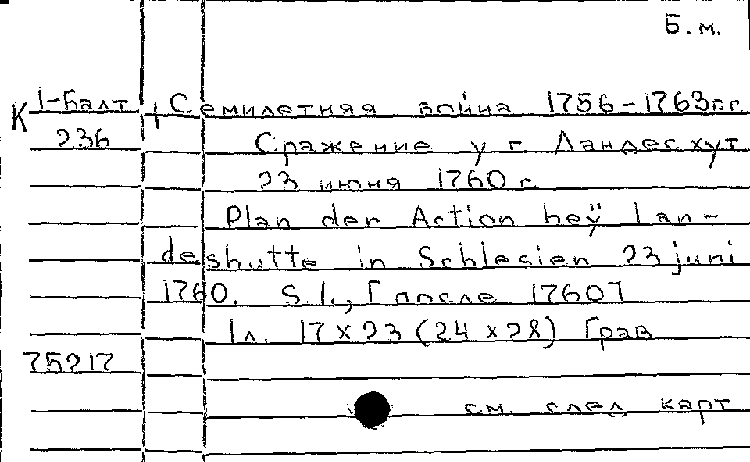 Б.м.
К 1-Балт + Семилетняя война 1756-1763гг.
236 Сражение у г. Ландесхут
23 июня 1760 г.
Plan der Action beÿ Lan-
deshutte in Schlesien 23 juni
1760. S.l., [после 1760]
1л. 17 x 23 (24 x 28) Грав
75217
см. след карт